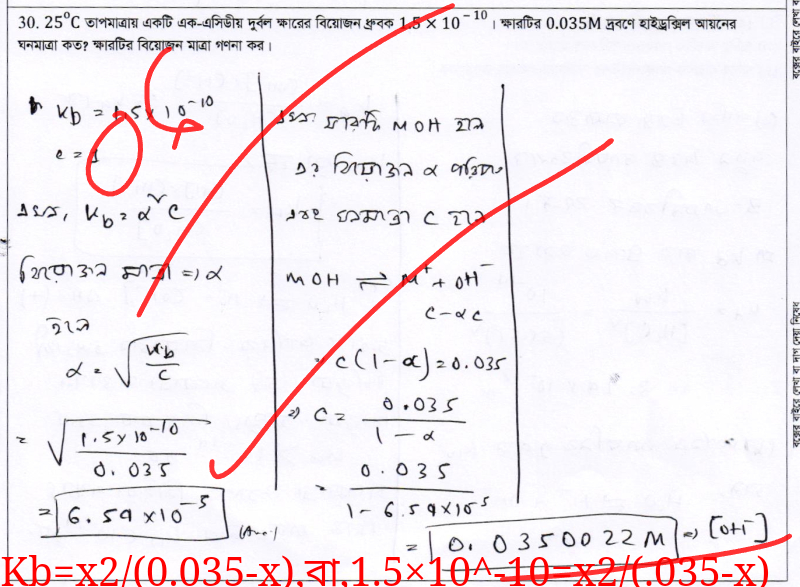 30. 25°C তাপমাত্রায় একটি এক-এসিডীয় দুর্বল ক্ষারের বিয়োজন ধ্রুবক 1.5 × 10⁻¹⁰ । ক্ষারটির 0.035M দ্রবণে হাইড্রক্সিল আয়নের
ঘনমাত্রা কত? ক্ষারটির বিয়োজন মাত্রা গণনা কর।
Kb = 1.5×10⁻¹⁰
এখন, Kb = α²C
বিয়োজন মাত্রা ⇒ α
হলে
α = √(Kb/C)
= √(1.5×10⁻¹⁰/0.035)
= 6.54×10⁻⁵ (Ans.)
এখন ক্ষারটি MOH হলে
এর বিয়োজন α
এবং ঘনমাত্রা C হলে
MOH ⇌ M⁺ + OH⁻
C-αC
C(1-α) = 0.035
⇒ C = 0.035/(1-α)
0.035/(1-6.54×10⁻⁵)
= 0.0350022M ⇒ [OH⁻]
Kb=x2/(0.035-x),বা,1.5×10^-10=x2/(.035-x)
বক্সের বাইরে লেখা বা দাগ দেয়া নিষেধ